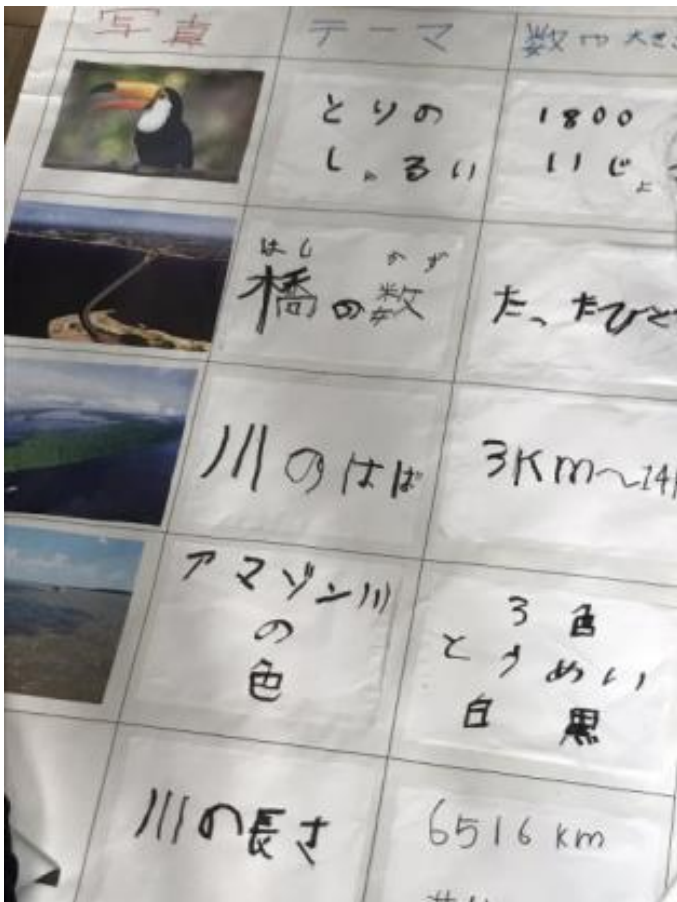 写真 テーマ 数や大きさ
とりの
しゅるい
1800
いじょ
はし かず
橋の数
たったひと
川のはば
3Km〜14
アマゾン川
の
色
3色
とうめい
白 黒
川の長さ
6516 km